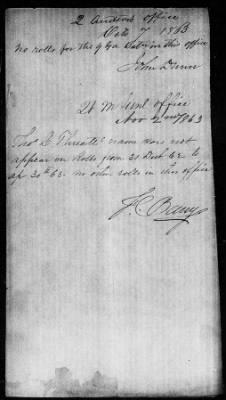 2 Auditors office
Oct 7 1863
no rolls for the 9 Ga Baty in this office
John Dunn
Qt M Genl office
Nov 2nd 1863
Thos L Threatts name does not
appear on Rolls from 31 Dect 62 to
ap 30th 63. no other rolls in this office